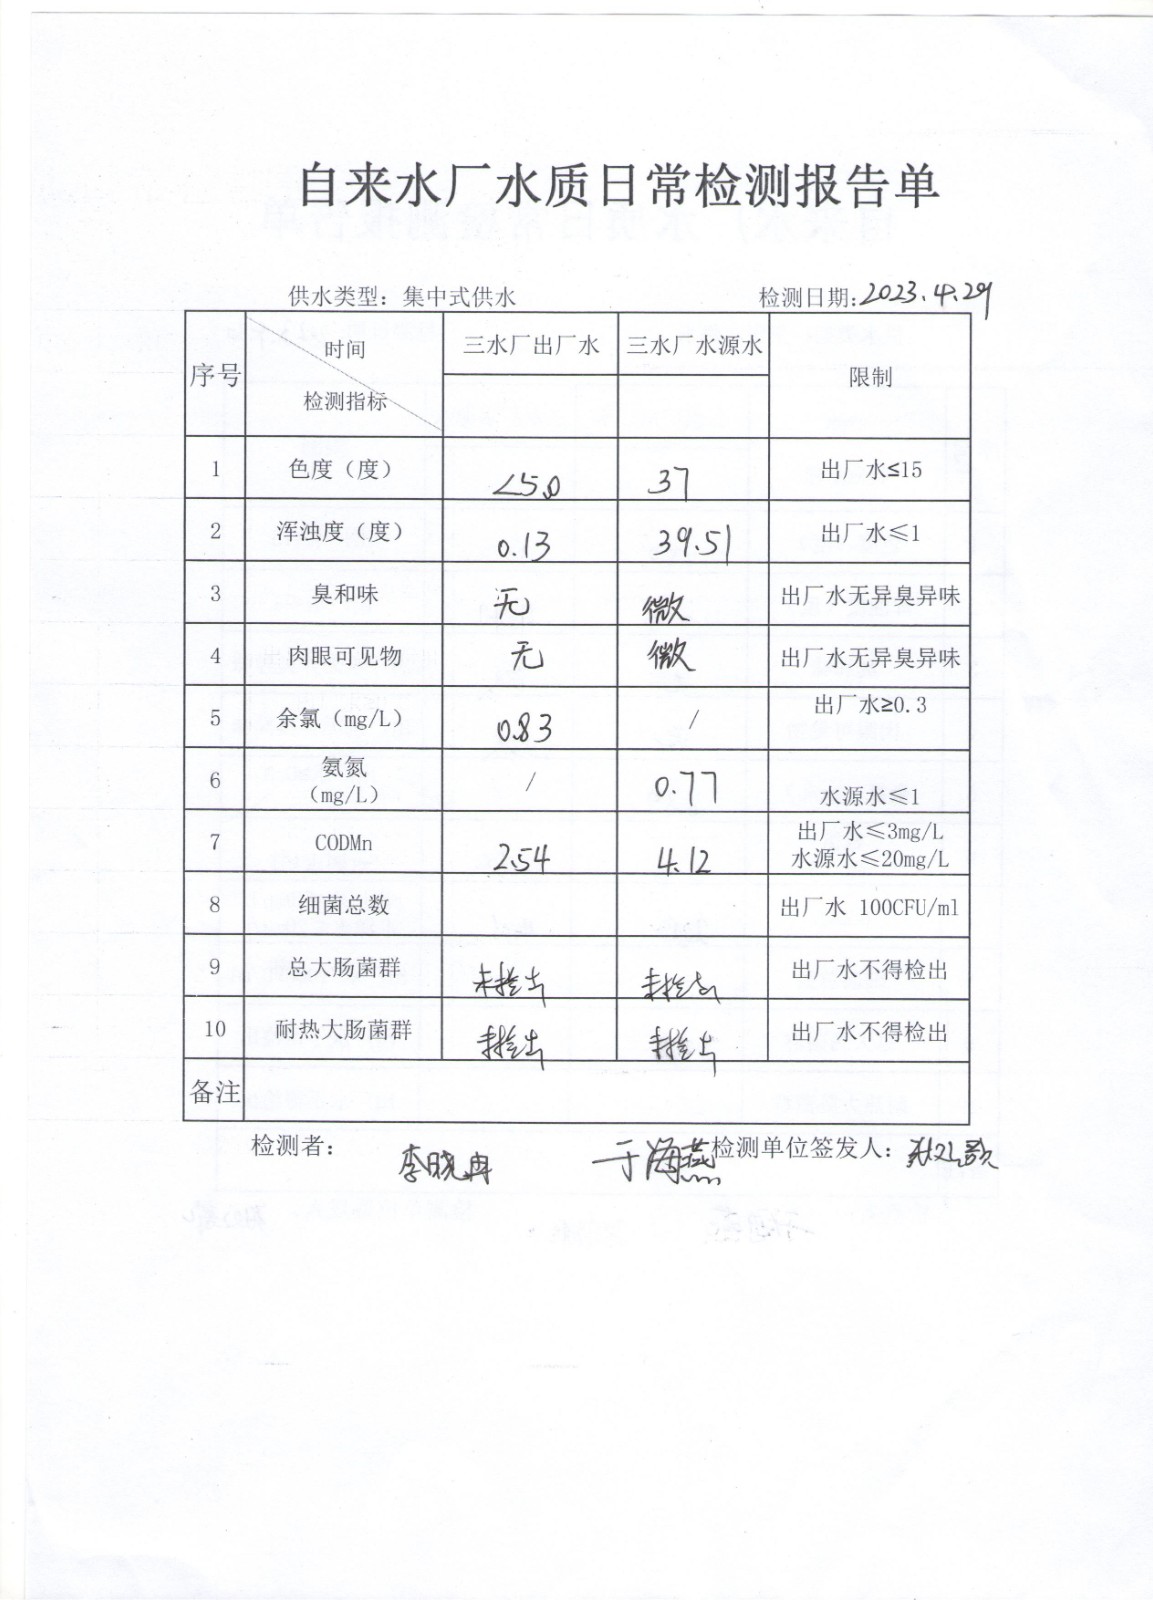 自来水厂水质日常检测报告单
供水类型：集中式供水 检测日期:2023.4.29
序号 时间 检测指标 三水厂出厂水 三水厂水源水 限制
1 色度（度） <5.0 37 出厂水≤15
2 浑浊度（度） 0.13 39.51 出厂水≤1
3 臭和味 无 微 出厂水无异臭异味
4 肉眼可见物 无 微 出厂水无异臭异味
5 余氯（mg/L） 0.83 / 出厂水≥0.3
6 氨氮（mg/L） / 0.77 水源水≤1
7 CODMn 2.54 4.12 出厂水≤3mg/L 水源水≤20mg/L
8 细菌总数 出厂水 100CFU/ml
9 总大肠菌群 未检出 未检出 出厂水不得检出
10 耐热大肠菌群 未检出 未检出 出厂水不得检出
备注
检测者： 李晓冉 于海燕 检测单位签发人：